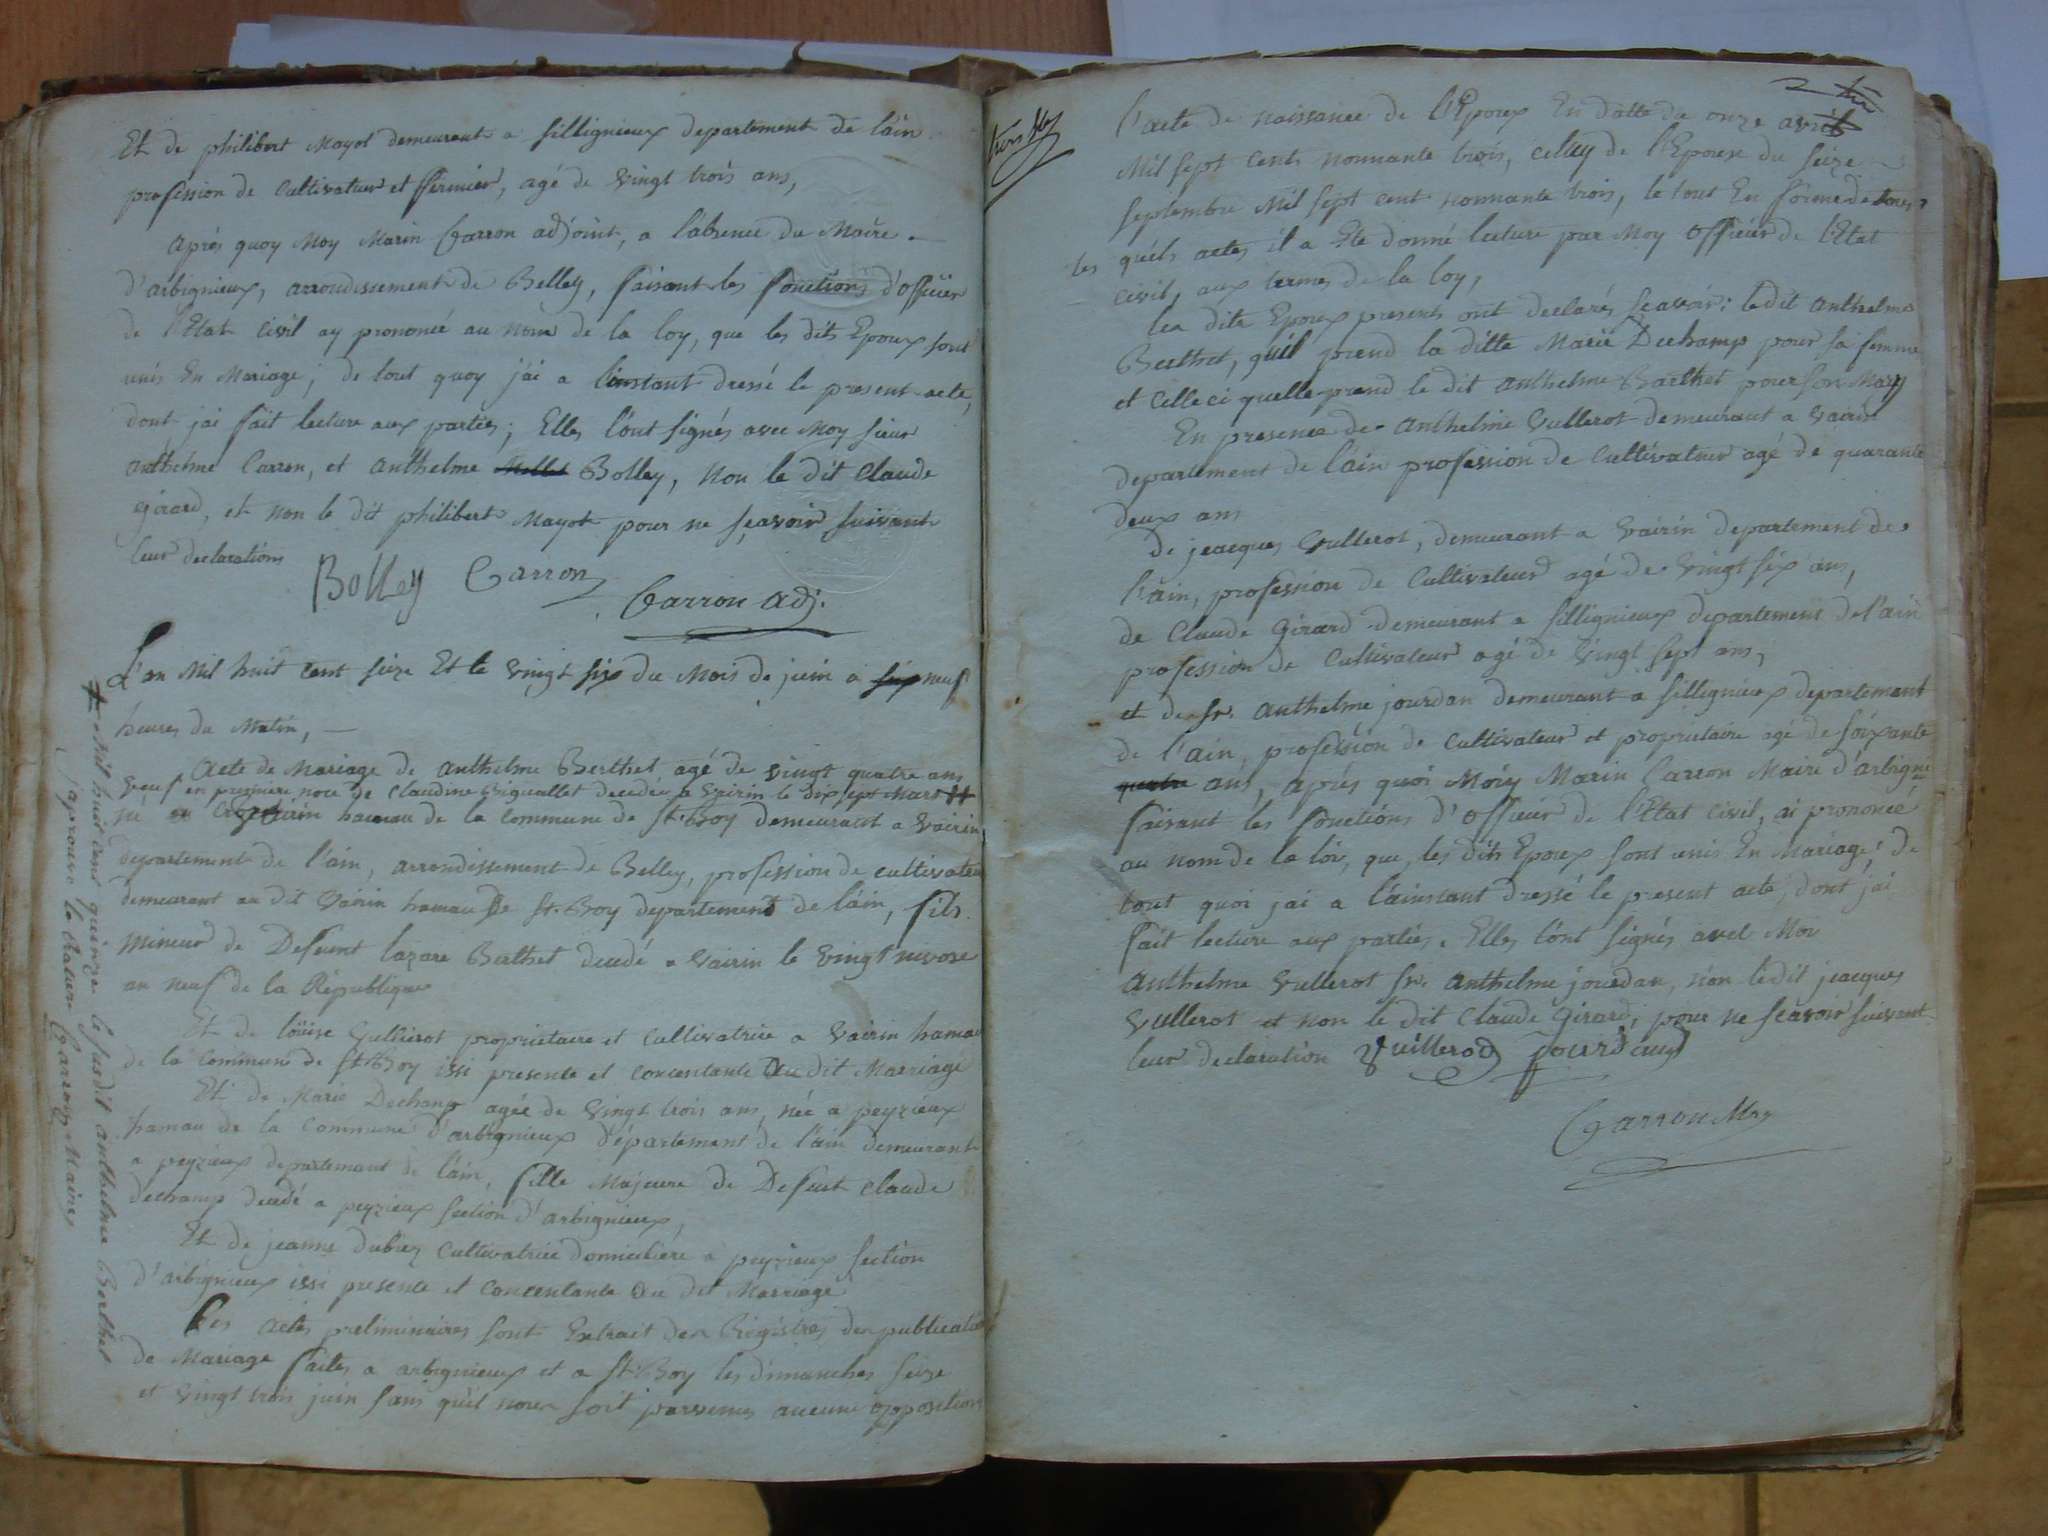 Et de philibert Mayot demeurant a sillignieux departement de l'ain
profession de Cultivateur et ffermier, agé de vingt trois ans,
Aprés quoy Moy Marin Carron adjoint, a l'absence du Maire
d'arbignieux, arrondissement de Belley, faisant les fonctions d'officier
de l'Etat Civil ay prononcé au nom de la loy, que les dits Epoux sont
unis En Mariage; de tout quoy j'ai a l'instant dressé le present acte,
dont jai fait lecture aux parties; Elles l'ont signés avec Moy sieur
anthelme Carron, et anthelme Bolley, Non le dit Claude
Girard, et non le dit philibert Mayot pour ne sçavoir suivant
leur declarations
Bolley Carron
Carron adj.
L'an Mil huit cent seize Et le vingt six du Mois de juin a six neuf
heures du Matin,
Acte de Mariage de anthelme Berthet agé de vingt quatre ans
veuf en premiere noce de Claudine Biguallet decedée a vairin le dix sept Mars #
né a vairin hamau de la Commune de St. Boy demeurant a Vairin
departement de l'ain, arrondissement de Belley, profession de cultivateur
demeurant au dit Vairin hamau de St. Boy departement de l'ain, fils
Mineur de Defeunt lazare Berthet decedé a vairin le vingt nivose
an neuf de la République
Et de loüise Vullierot proprietaire et Cultivatrice a Vairin hamau
de la Commune de St. Boy issi presente et concentante Au dit Marriage
Et de Marie Dechamp agée de vingt trois ans, née a peyzieux
hamau de la Commune d'arbignieux département de l'ain demeurant
a peyzieux departement de l'ain, fille Majeure de Defunt Claude
dechamp decedé a peyzieux section d'arbignieux,
Et de jeanne dubrez Cultivatrice domiciliére a peyzieux section
d'arbignieux issi presente et Concentante Au dit Marriage
Les actes preliminaires sont Extrait des Régistres des publication
de Mariage faites a arbignieux et a St. Boy les dimanches seize
et vingt trois juin sans qu'il nous soit parvenus aucune opposition
# Mil huit cent quinze le susdit anthelme Berthet
j'aprouve la Rature Carron, Maire
l'acte de naissance de l'Epoux En datte du onze avril
Mil sept cents nonnante trois, celuy de l'Epouse du seize
septembre Mil sept cent nonnante trois, le tout En forme de tous
les quéls actes il a Eté donné lecture par Moy officiér de l'Etat
civil, aux termes de la loy,
les dits Epoux presents ont declarés sçavoir: ledit anthelme
Berthet, qu'il prend la ditte Marie Dechamp pour sa femme
et Celle ci quelle prend le dit anthelme Barthet pour son Mary
En presence de anthelme Vullerot demeurant a Vairin
departement de l'ain profession de Cultivateur agé de quarante
deux ans
de jeacques Vullerot, demeurant a Vairin departement de
l'ain, profession de Cultivateur agé de vingt six ans,
de Claude Girard demeurant a sillignieux departement de l'ain
profession de Cultivateur agé de Vingt sept ans,
et de sr. anthelme jourdan demeurant a sillignieux departement
de l'ain, profession de Cultivateur et proprietaire agé de soixante
quatre ans, aprés quoi Moiy Marin Carron Maire d'arbignx
faisant les fonctions d'officier de l'Etat Civil, ai prononcé
au nom de la loi, que, les dits Epoux sont unis En Mariage; de
tout quoi jai a l'ainstant dressé le present acte, dont jai
fait lecture aux parties. Elles l'ont signés avec Moi
Anthelme Vullerot sr. anthelme jourdan, non ledit jeacques
Vullerot et non le dit Claude Girard, pour ne sçavoir suivant
leur declaration Vuillerod jourdan
Carron Mre